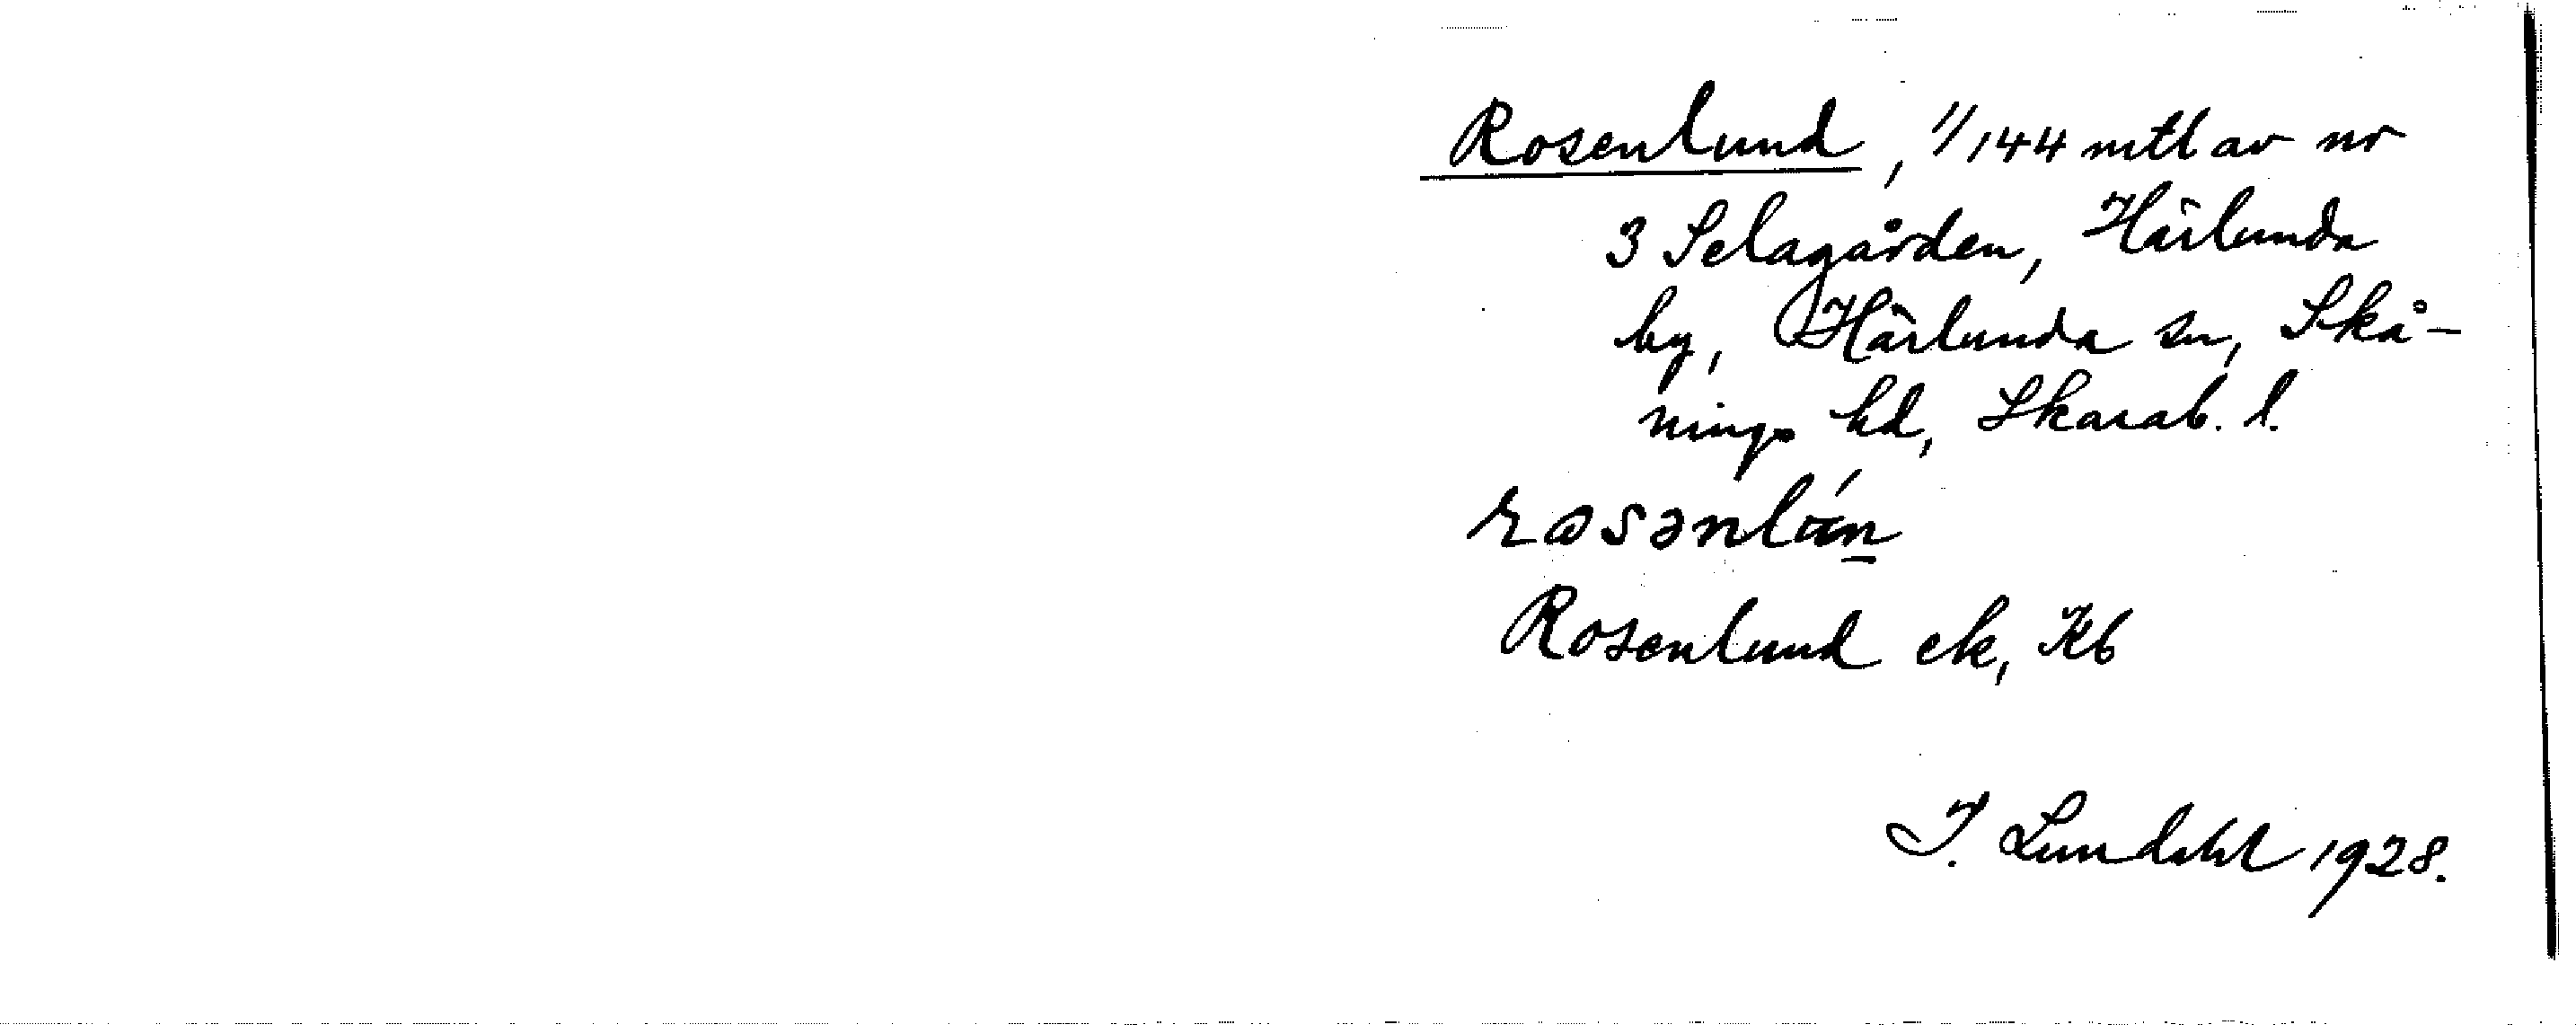 Rosenlund, 1/144 mtl av nr
3 Selagården, Härlunda
by, Härlunda sn, Skå-
nings hd, Skarab. l.
Rosenlund ek, Kb
I. Lundahl 1928.